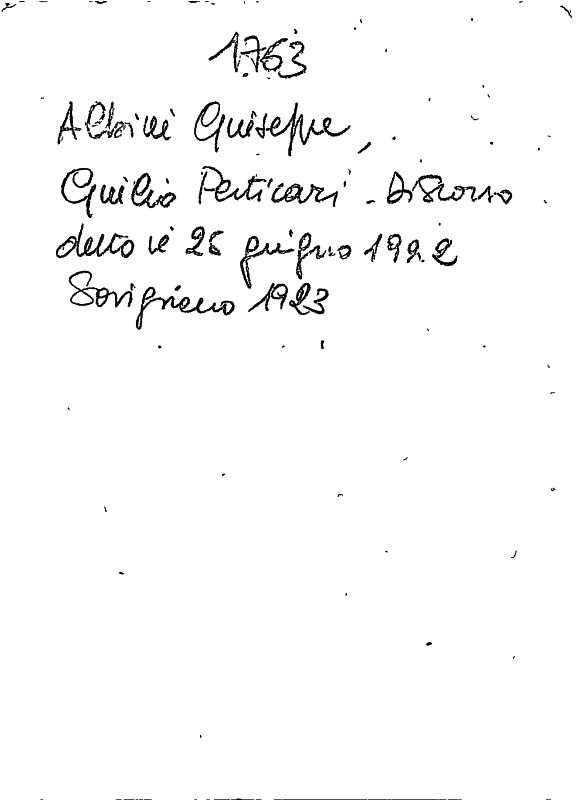 1763
Albini Giuseppe,
Giulio Perticari - Discorso
detto il 25 giugno 1922
Savignano 1923